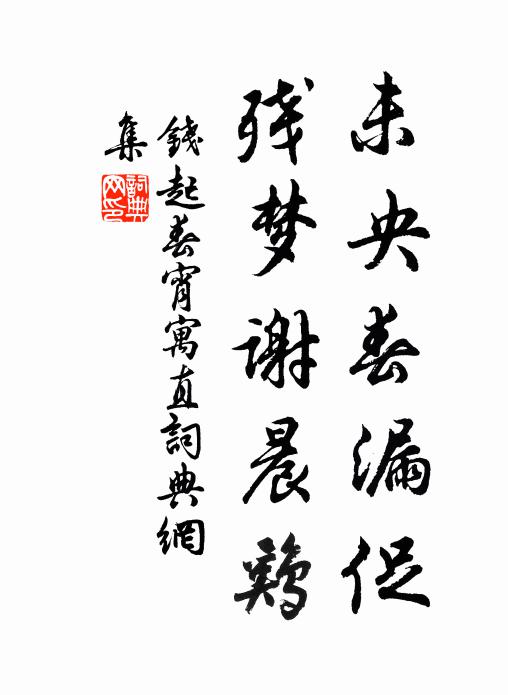 未央春漏促
残梦谢晨鸡
錢起春宵寓直詞典網
集
詞典
网印